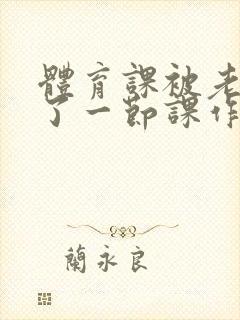 體育課被老
了一節課作
蘭永良